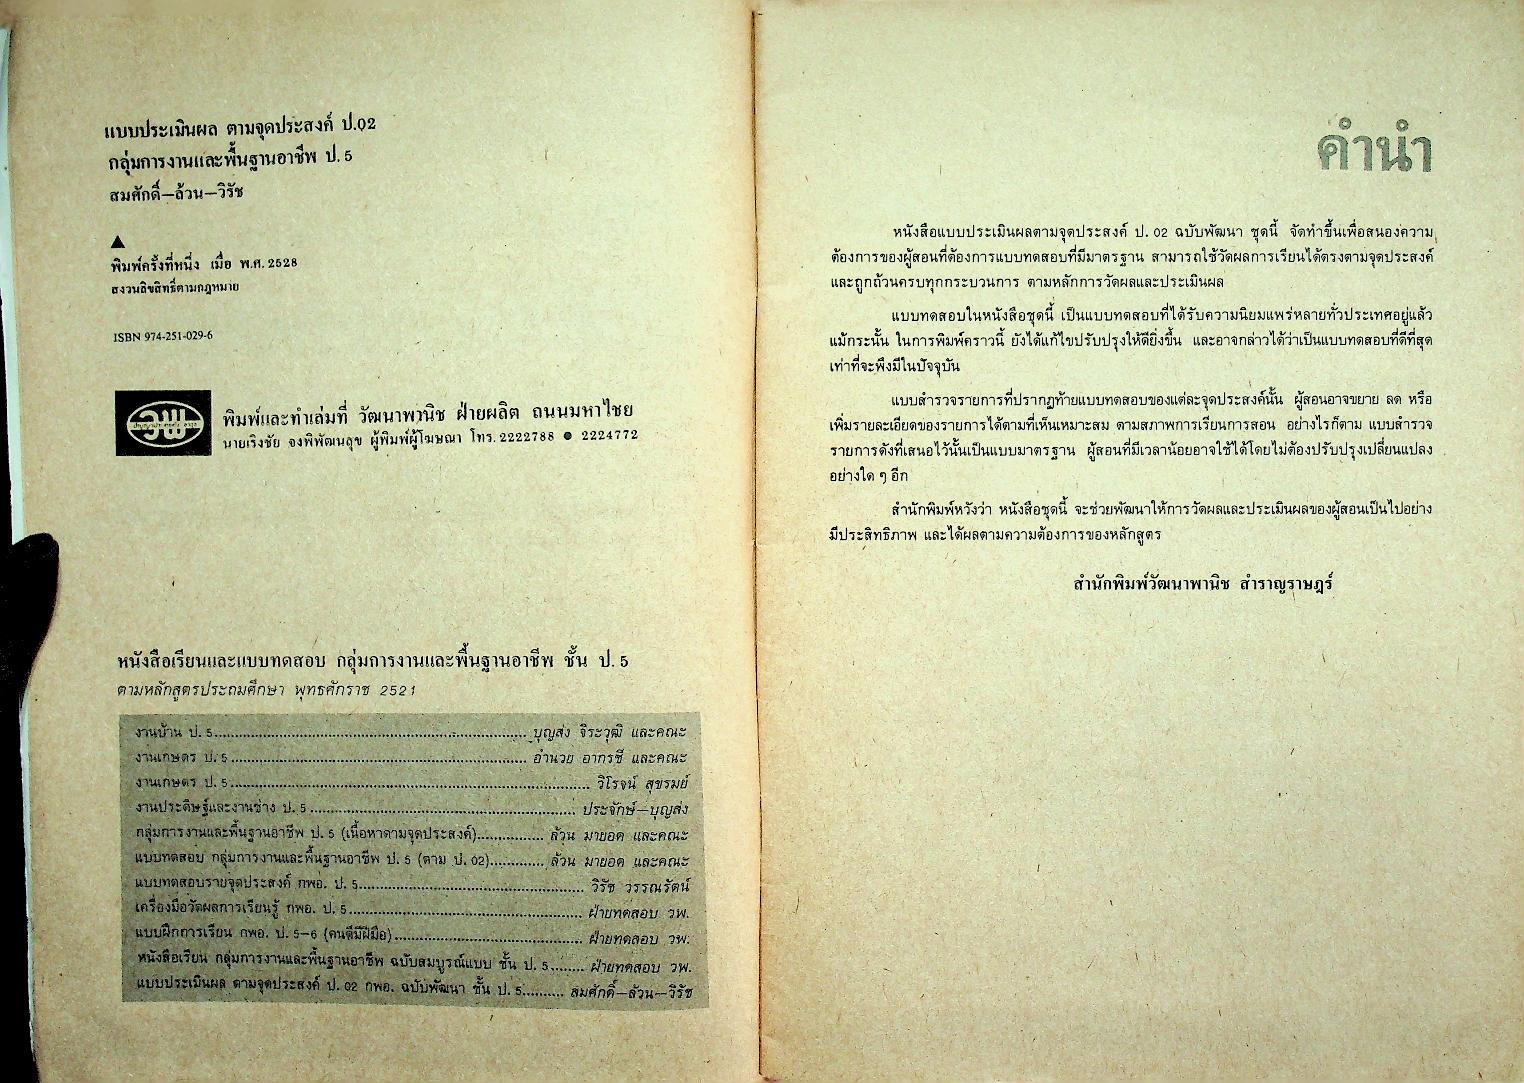 แบบประเมินผล ตามจุดประสงค์ ป.02
กลุ่มการงานและพื้นฐานอาชีพ ป. 5
สมศักดิ์—ล้วน—วิรัช
▲
พิมพ์ครั้งที่หนึ่ง เมื่อ พ.ศ. 2528
สงวนลิขสิทธิ์ตามกฎหมาย
ISBN 974-251-029-6
วพ
พิมพ์และทำเล่มที่ วัฒนาพานิช ฝ่ายผลิต ถนนมหาไชย
นายเริงชัย จงพิพัฒนสุข ผู้พิมพ์ผู้โฆษณา โทร. 2222788 ● 2224772
หนังสือเรียนและแบบทดสอบ กลุ่มการงานและพื้นฐานอาชีพ ชั้น ป. 5
ตามหลักสูตรประถมศึกษา พุทธศักราช 2521
งานบ้าน ป. 5........................................ บุญส่ง จิระวุฒิ และคณะ
งานเกษตร ป. 5........................................ อำนวย อากรชี และคณะ
งานเกษตร ป. 5........................................ วิโรจน์ สุขรมย์
งานประดิษฐ์และงานช่าง ป. 5........................................ ประจักษ์—บุญส่ง
กลุ่มการงานและพื้นฐานอาชีพ ป. 5 (เนื้อหาตามจุดประสงค์)................ ล้วน มายอด และคณะ
แบบทดสอบ กลุ่มการงานและพื้นฐานอาชีพ ป. 5 (ตาม ป. 02)............. ล้วน มายอด และคณะ
แบบทดสอบรายจุดประสงค์ กพอ. ป. 5........................................ วิรัช วรรณรัตน์
เครื่องมือวัดผลการเรียนรู้ กพอ. ป. 5........................................ ฝ่ายทดสอบ วพ.
แบบฝึกการเรียน กพอ. ป. 5—6 (คนดีมีฝีมือ)........................................ ฝ่ายทดสอบ วพ.
หนังสือเรียน กลุ่มการงานและพื้นฐานอาชีพ ฉบับสมบูรณ์แบบ ชั้น ป. 5........ ฝ่ายทดสอบ วพ.
แบบประเมินผล ตามจุดประสงค์ ป. 02 กพอ. ฉบับพัฒนา ชั้น ป. 5.......... สมศักดิ์—ล้วน—วิรัช
คำนำ
หนังสือแบบประเมินผลตามจุดประสงค์ ป. 02 ฉบับพัฒนา ชุดนี้ จัดทำขึ้นเพื่อสนองความ
ต้องการของผู้สอนที่ต้องการแบบทดสอบที่มีมาตรฐาน สามารถใช้วัดผลการเรียนได้ตรงตามจุดประสงค์
และถูกถ้วนครบทุกกระบวนการ ตามหลักการวัดผลและประเมินผล
แบบทดสอบในหนังสือชุดนี้ เป็นแบบทดสอบที่ได้รับความนิยมแพร่หลายทั่วประเทศอยู่แล้ว
แม้กระนั้น ในการพิมพ์คราวนี้ ยังได้แก้ไขปรับปรุงให้ดียิ่งขึ้น และอาจกล่าวได้ว่าเป็นแบบทดสอบที่ดีที่สุด
เท่าที่จะพึงมีในปัจจุบัน
แบบสำรวจรายการที่ปรากฏท้ายแบบทดสอบของแต่ละจุดประสงค์นั้น ผู้สอนอาจขยาย ลด หรือ
เพิ่มรายละเอียดของรายการได้ตามที่เห็นเหมาะสม ตามสภาพการเรียนการสอน อย่างไรก็ตาม แบบสำรวจ
รายการดังที่เสนอไว้นั้นเป็นแบบมาตรฐาน ผู้สอนที่มีเวลาน้อยอาจใช้ได้โดยไม่ต้องปรับปรุงเปลี่ยนแปลง
อย่างใด ๆ อีก
สำนักพิมพ์หวังว่า หนังสือชุดนี้ จะช่วยพัฒนาให้การวัดผลและประเมินผลของผู้สอนเป็นไปอย่าง
มีประสิทธิภาพ และได้ผลตามความต้องการของหลักสูตร
สำนักพิมพ์วัฒนาพานิช สำราญราษฎร์